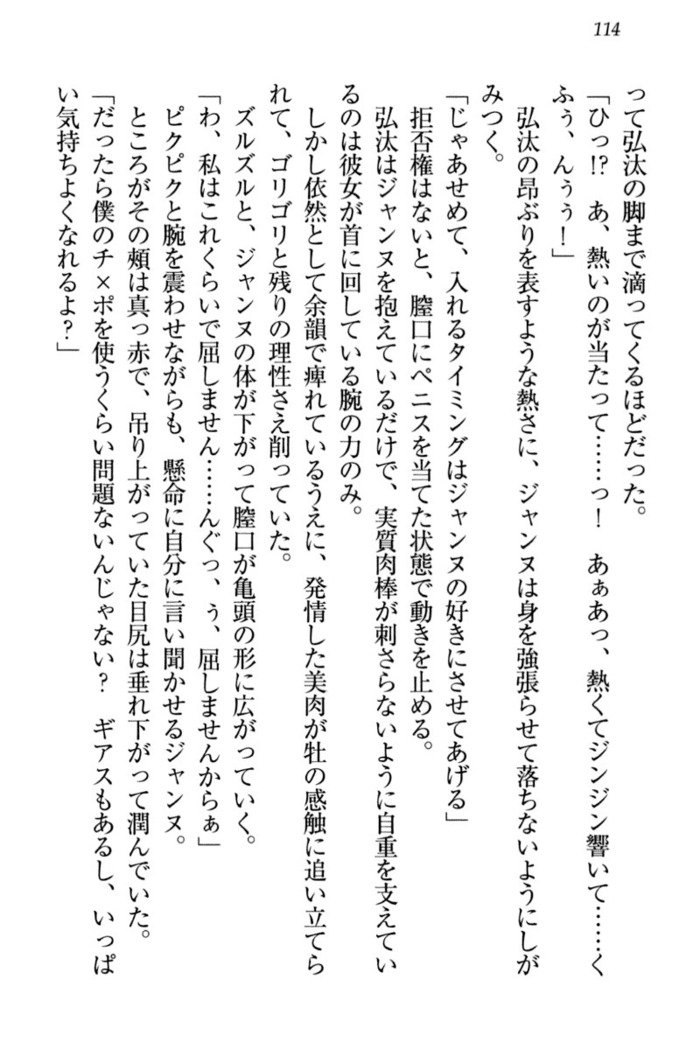 114
って弘汰の脚まで滴ってくるほどだった。
「ひっ!?　あ、熱いのが当たって……っ！　あぁあっ、熱くてジンジン響いて……く
ふぅ、んぅぅ！」
弘汰の昂ぶりを表すような熱さに、ジャンヌは身を強張らせて落ちないようにしが
みつく。
「じゃあせめて、入れるタイミングはジャンヌの好きにさせてあげる」
拒否権はないと、膣口にペニスを当てた状態で動きを止める。
弘汰はジャンヌを抱えているだけで、実質肉棒が刺さらないように自重を支えてい
るのは彼女が首に回している腕の力のみ。
しかし依然として余韻で痺れているうえに、発情した美肉が牡の感触に追い立てら
れて、ゴリゴリと残りの理性さえ削っていた。
ズルズルと、ジャンヌの体が下がって膣口が亀頭の形に広がっていく。
「わ、私はこれくらいで屈しません……んぐっ、ぅ、屈しませんからぁ」
ピクピクと腕を震わせながらも、懸命に自分に言い聞かせるジャンヌ。
ところがその頬は真っ赤で、吊り上がっていた目尻は垂れ下がって潤んでいた。
「だったら僕のチ×ポを使うくらい問題ないんじゃない？　ギアスもあるし、いっぱ
い気持ちよくなれるよ？」